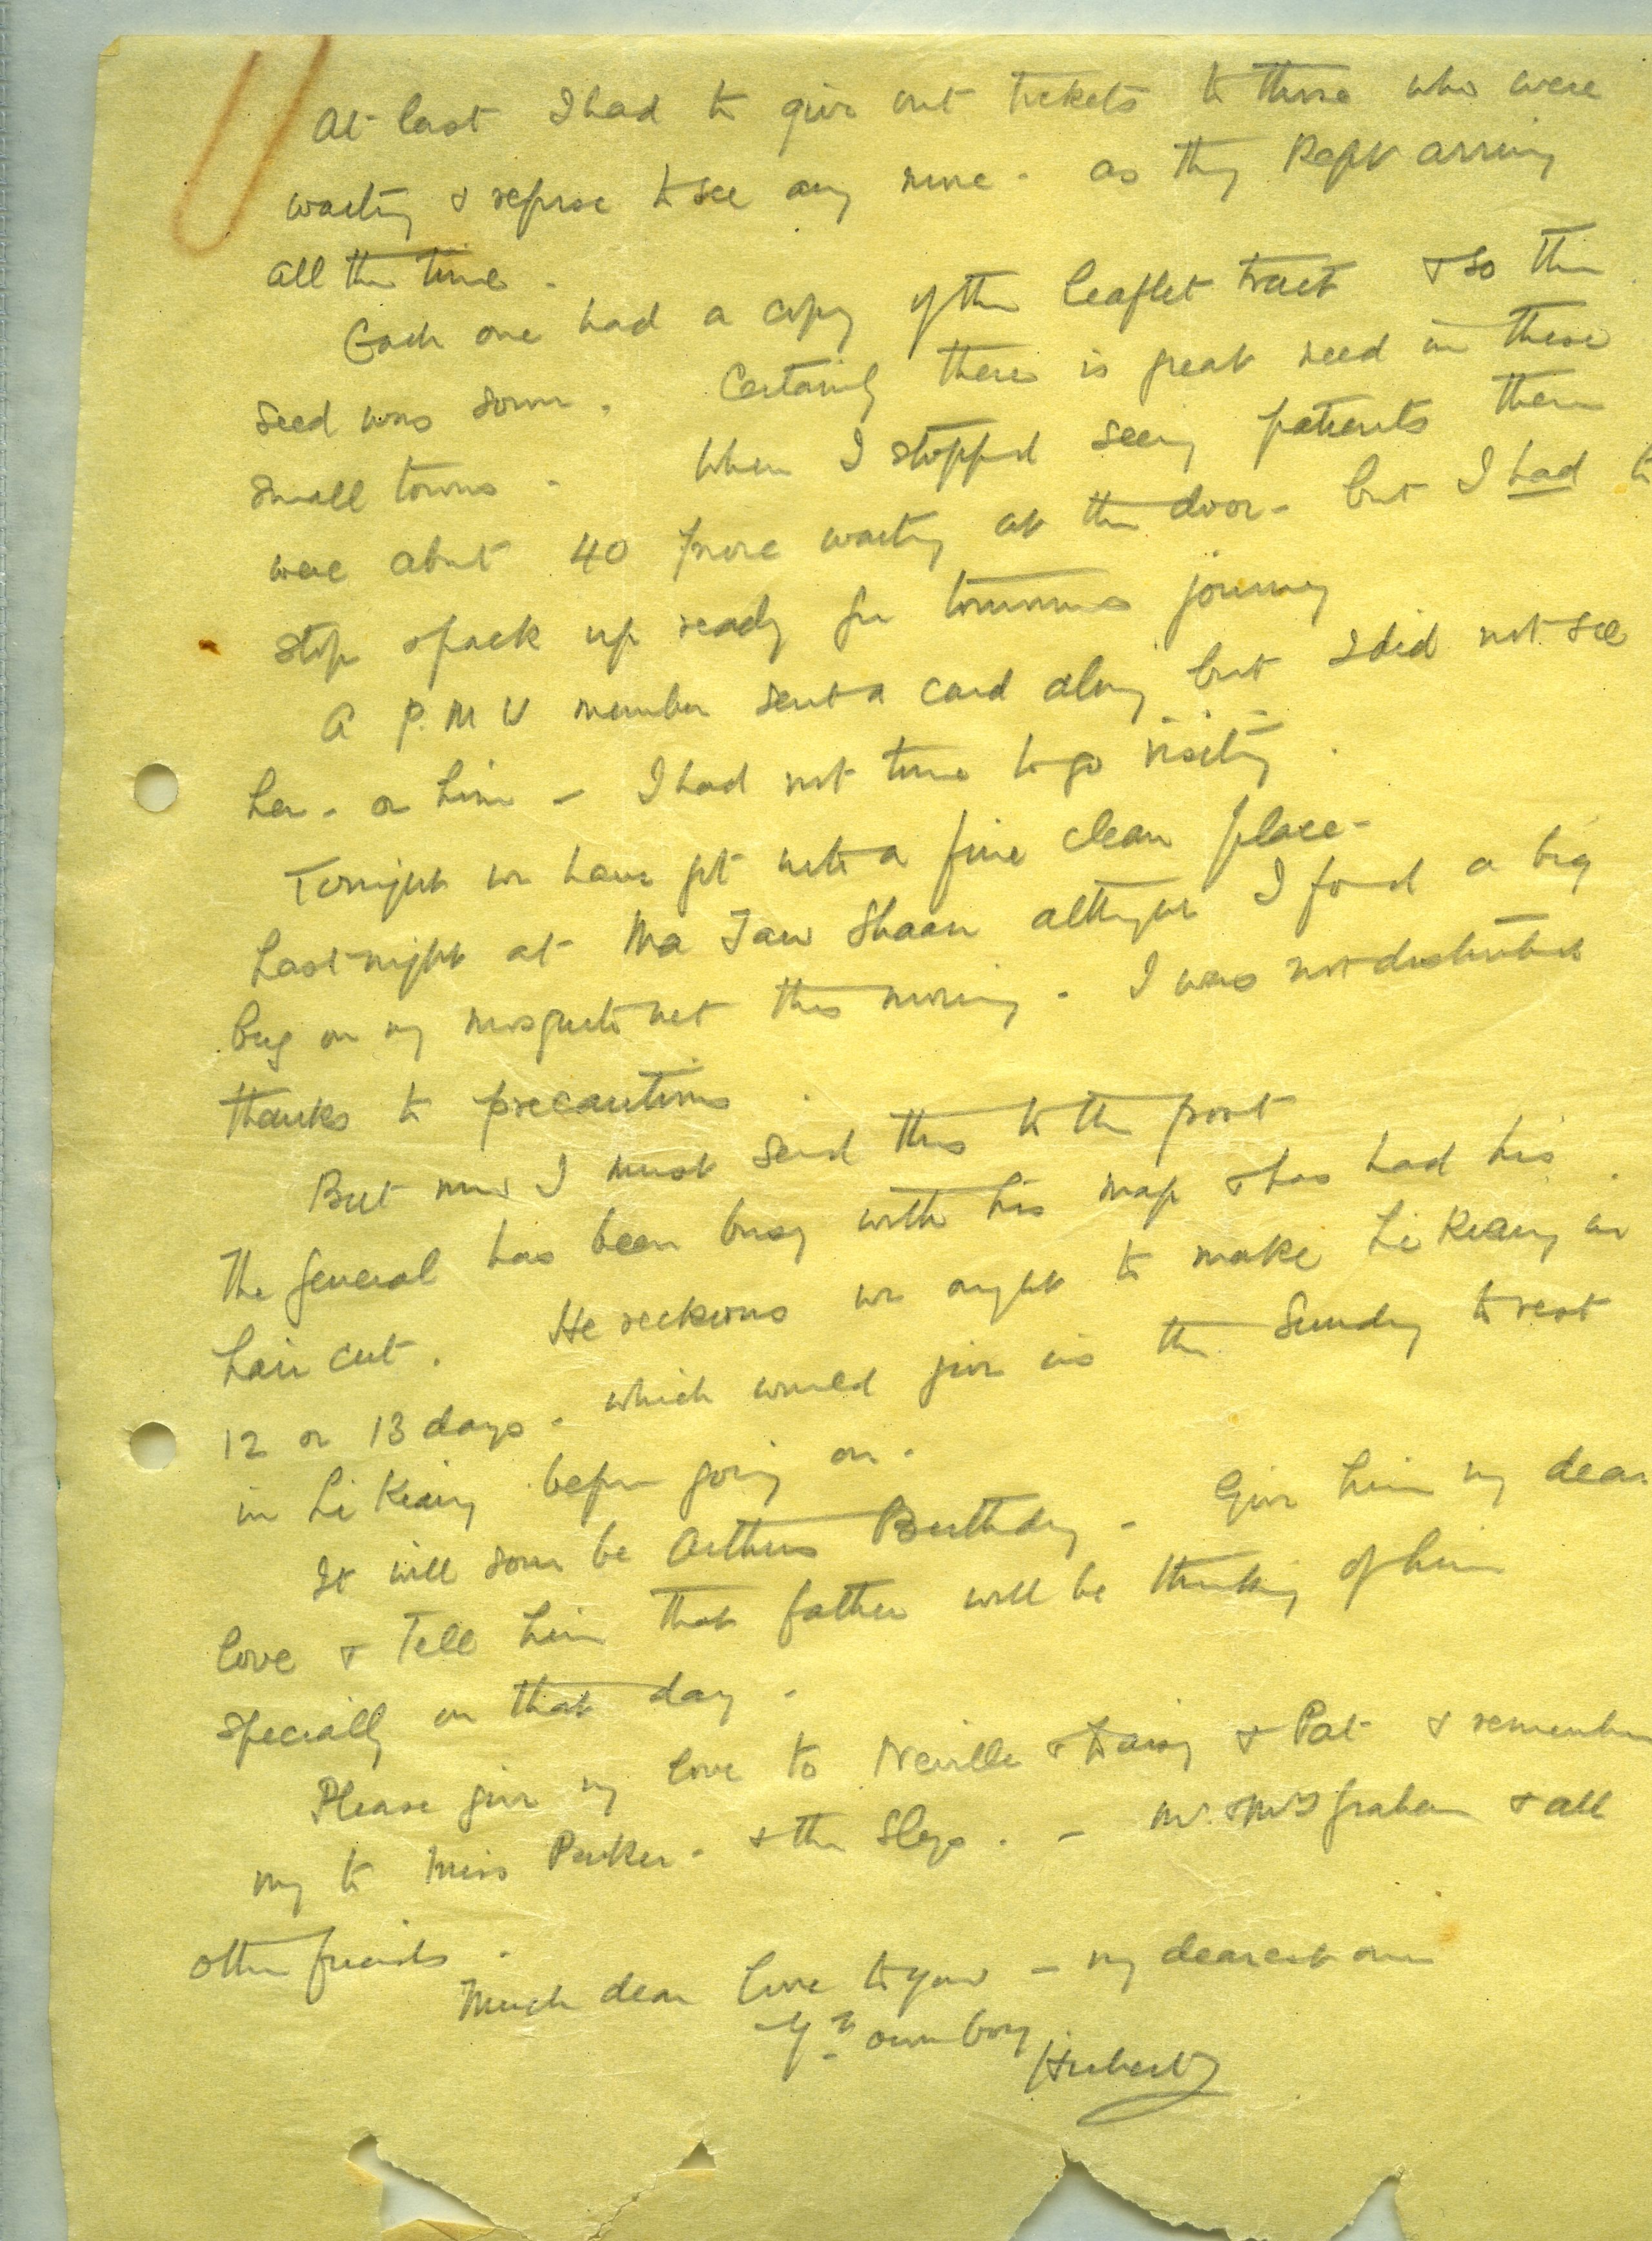 At last I had to give out tickets to those who were
waiting & refuse to see any more - as they kept arriving
all the time.
Each one had a copy of the leaflet tract & so the
seed was sown. Certainly there is great need in these
small towns. When I stopped seeing patients there
were about 40 more waiting at the door - but I had to
stop & pack up ready for tomorrows journey
A P.M U member sent a card along but I did not see
her - or him - I had not time to go visiting.
Tonight we have got into a fine clean place -
Last night at Ma Jaw Shaan although I found a big
bug on my mosquito net this morning - I was not disturbed
thanks to precautions.
But now I must send this to the post
The General has been busy with his map & has had his
hair cut. He reckons we ought to make Li Kiang in
12 or 13 days - which would give us the Sunday to rest
in Li Kiang before going on.
It will soon be Arthurs Birthday - Give him my dear
love & Tell him that father will be thinking of him
specially on that day.
Please give my love to Neville & Daisy & Pat & remember
my to Miss Parker - & the - Mr. & Mrs Graham & all
other friends.
Much dear love to you - my dearest one
Yr own boy
Hubert